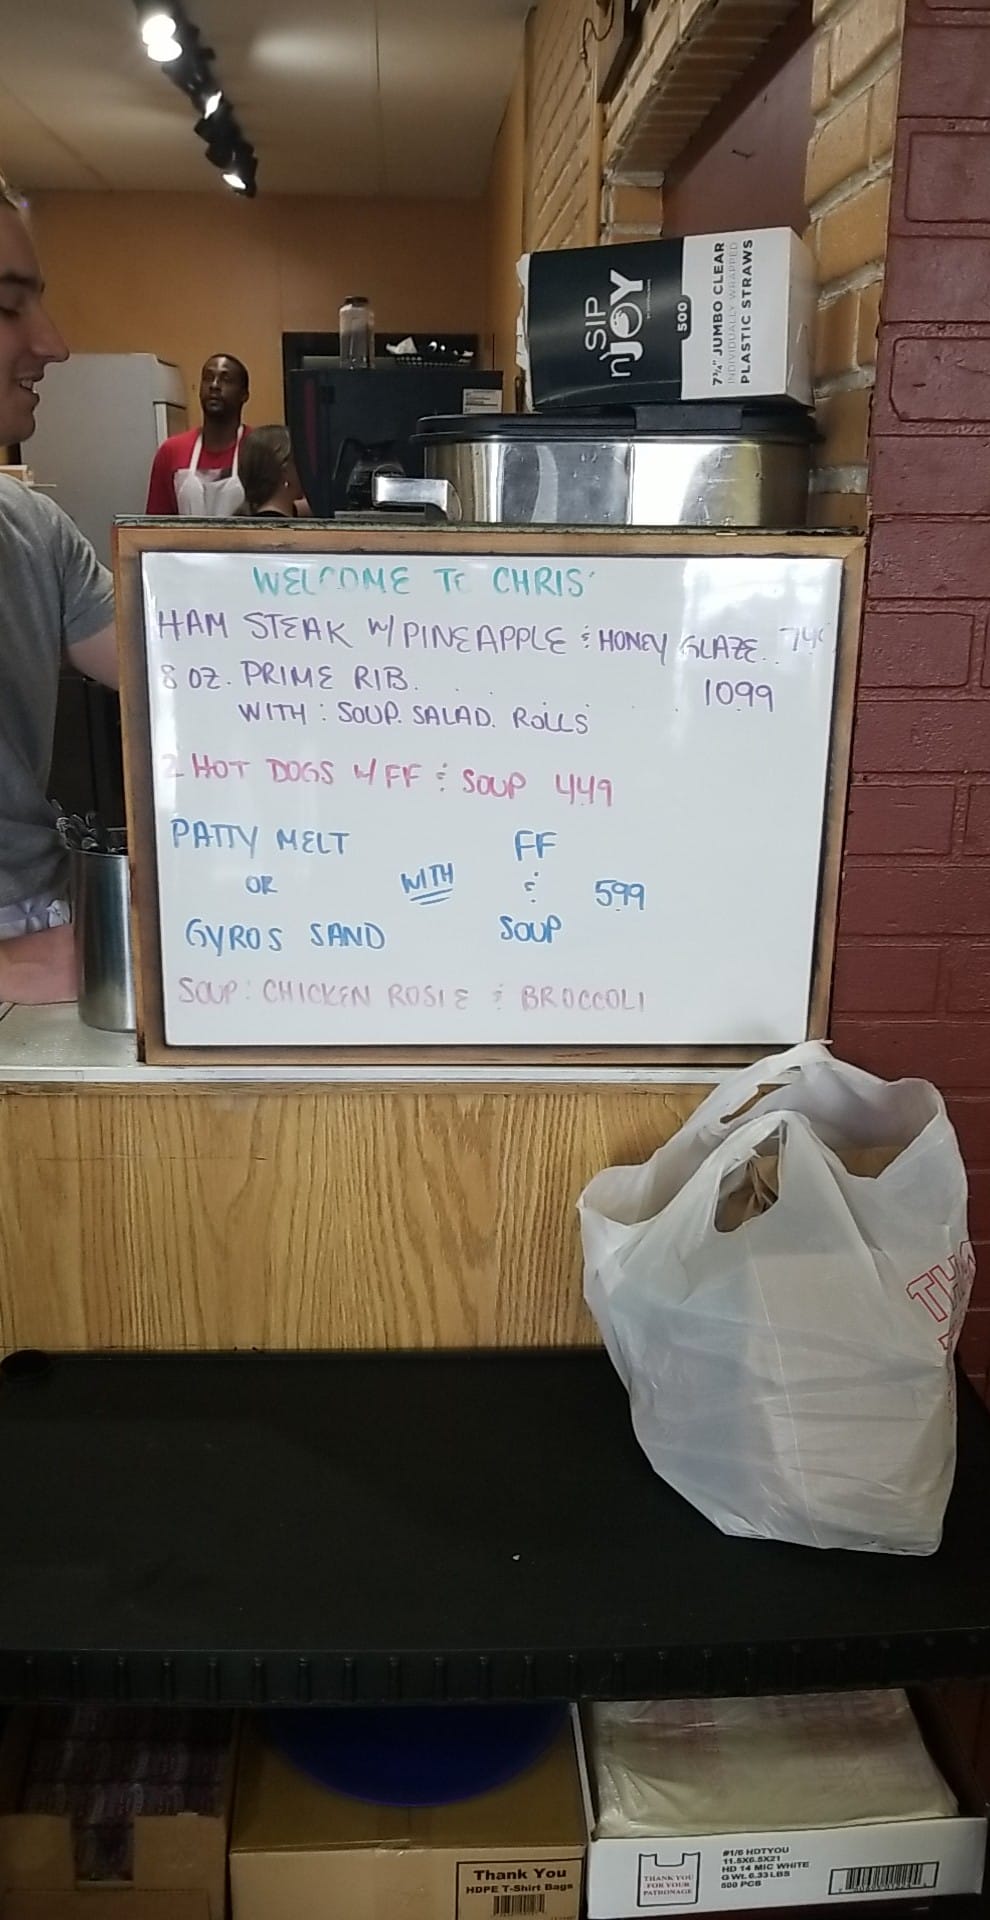 SIP
n'JOY
500
7¾" JUMBO CLEAR
INDIVIDUALLY WRAPPED
PLASTIC STRAWS
WELCOME TO CHRIS'
HAM STEAK W/ PINEAPPLE & HONEY GLAZE..
8 OZ. PRIME RIB. . . . . 1099
WITH: SOUP. SALAD. ROLLS
2 HOT DOGS W/ FF & SOUP 449
PATTY MELT
OR
GYROS SAND
WITH
FF
&
SOUP
599
SOUP: CHICKEN ROSIE & BROCCOLI
Thank You
HDPE T-Shirt Bags
THANK YOU
FOR YOUR
PATRONAGE
#1/6 HDTYOU
11.5X6.5X21
HD 14 MIC WHITE
G Wt. 6.33 LBS
500 PCS